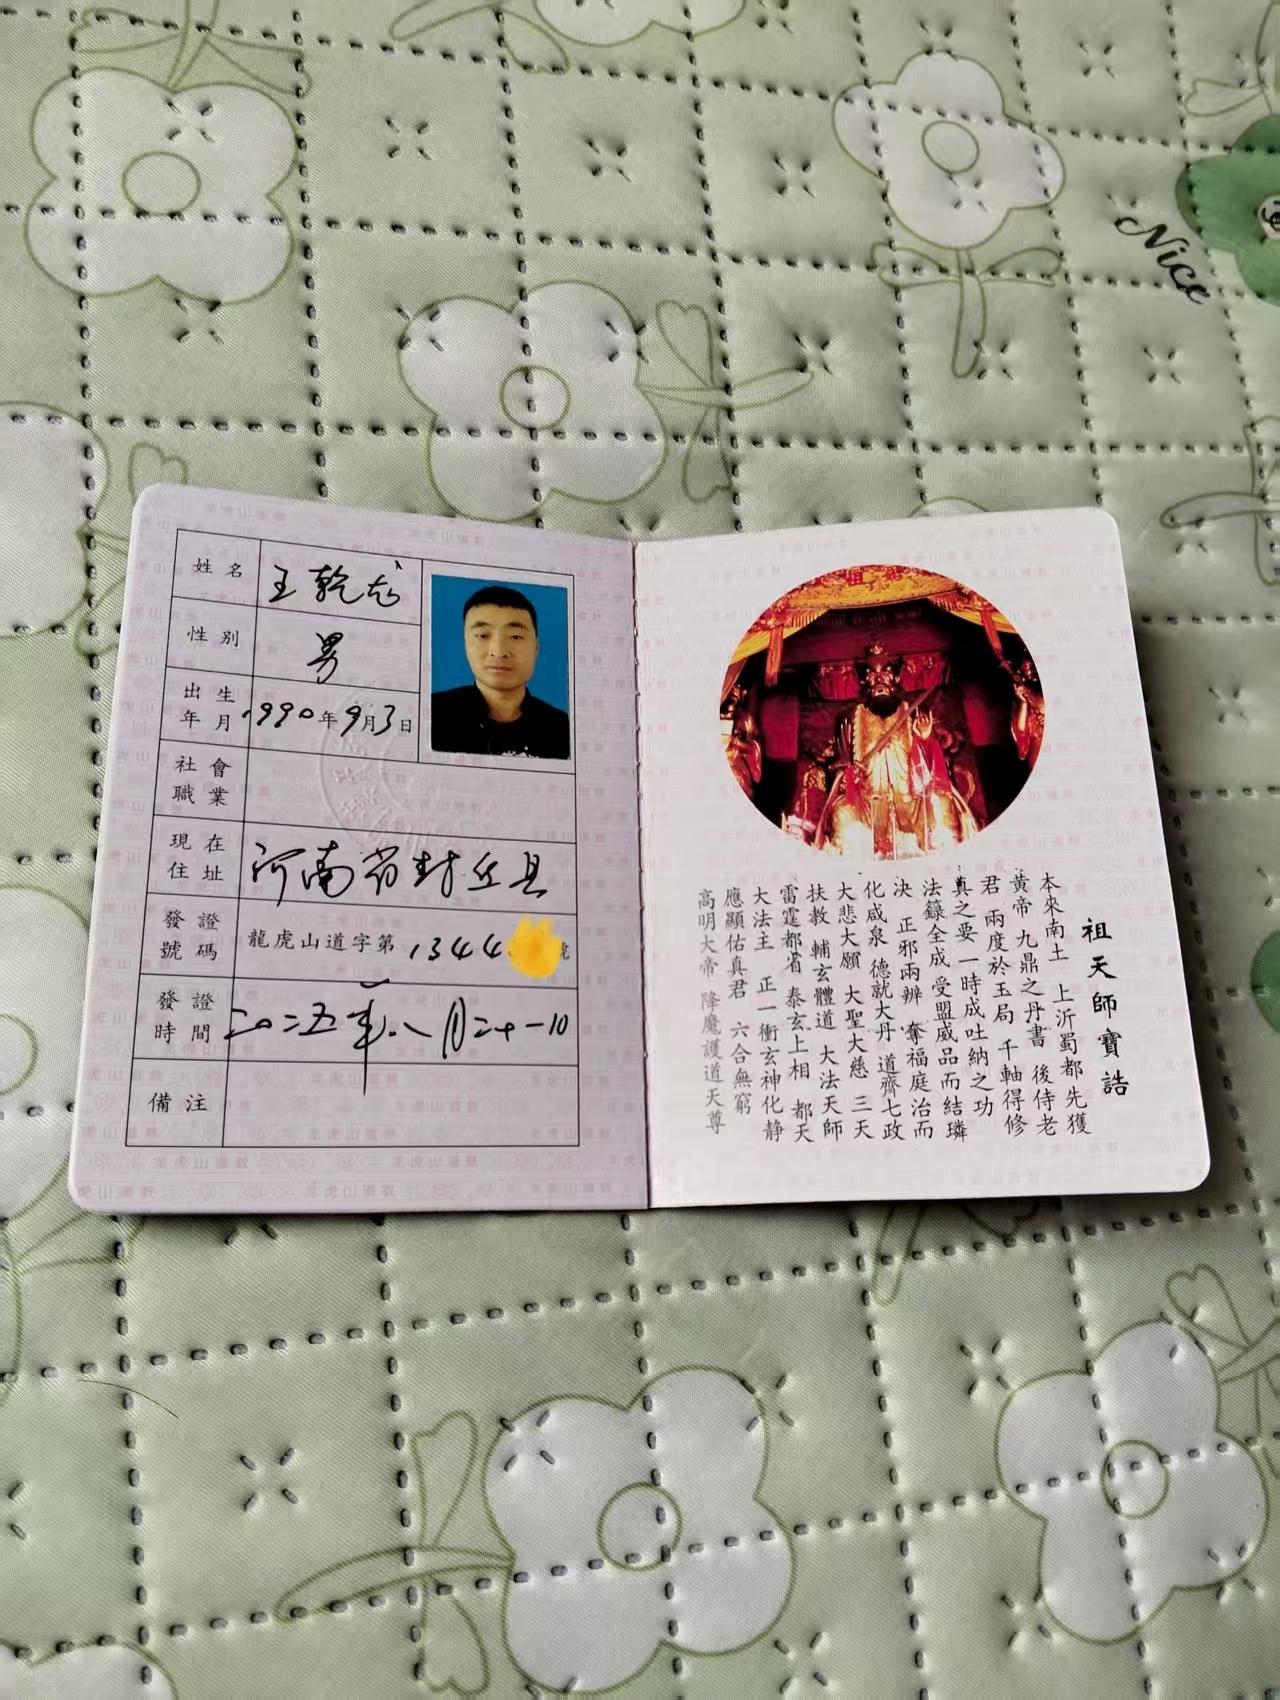 Nice
姓名 王乾龙
性别 男
出生年月 1990年9月3日
社會職業
現在住址 河南省封丘县
發證號碼 龍虎山道字第1344 號
發證時間 二〇二五年八月二十一日
備注
祖天師寶誥
本來南土 上沂蜀都先獲
黄帝 九鼎之丹書 後侍老
君 兩度於玉局 千軸得修
真之要 一時成吐納之功
法籙全成 受盟威品而結璘
决 正邪兩辨 奪福庭治而
化咸泉 德就大丹 道齊七政
大悲大願 大聖大慈 三天
扶教 輔玄體道 大法天師
雷霆都省 泰玄上相 都天
大法主 正一衝玄神化静
應顯佑真君 六合無窮
高明大帝 降魔護道天尊